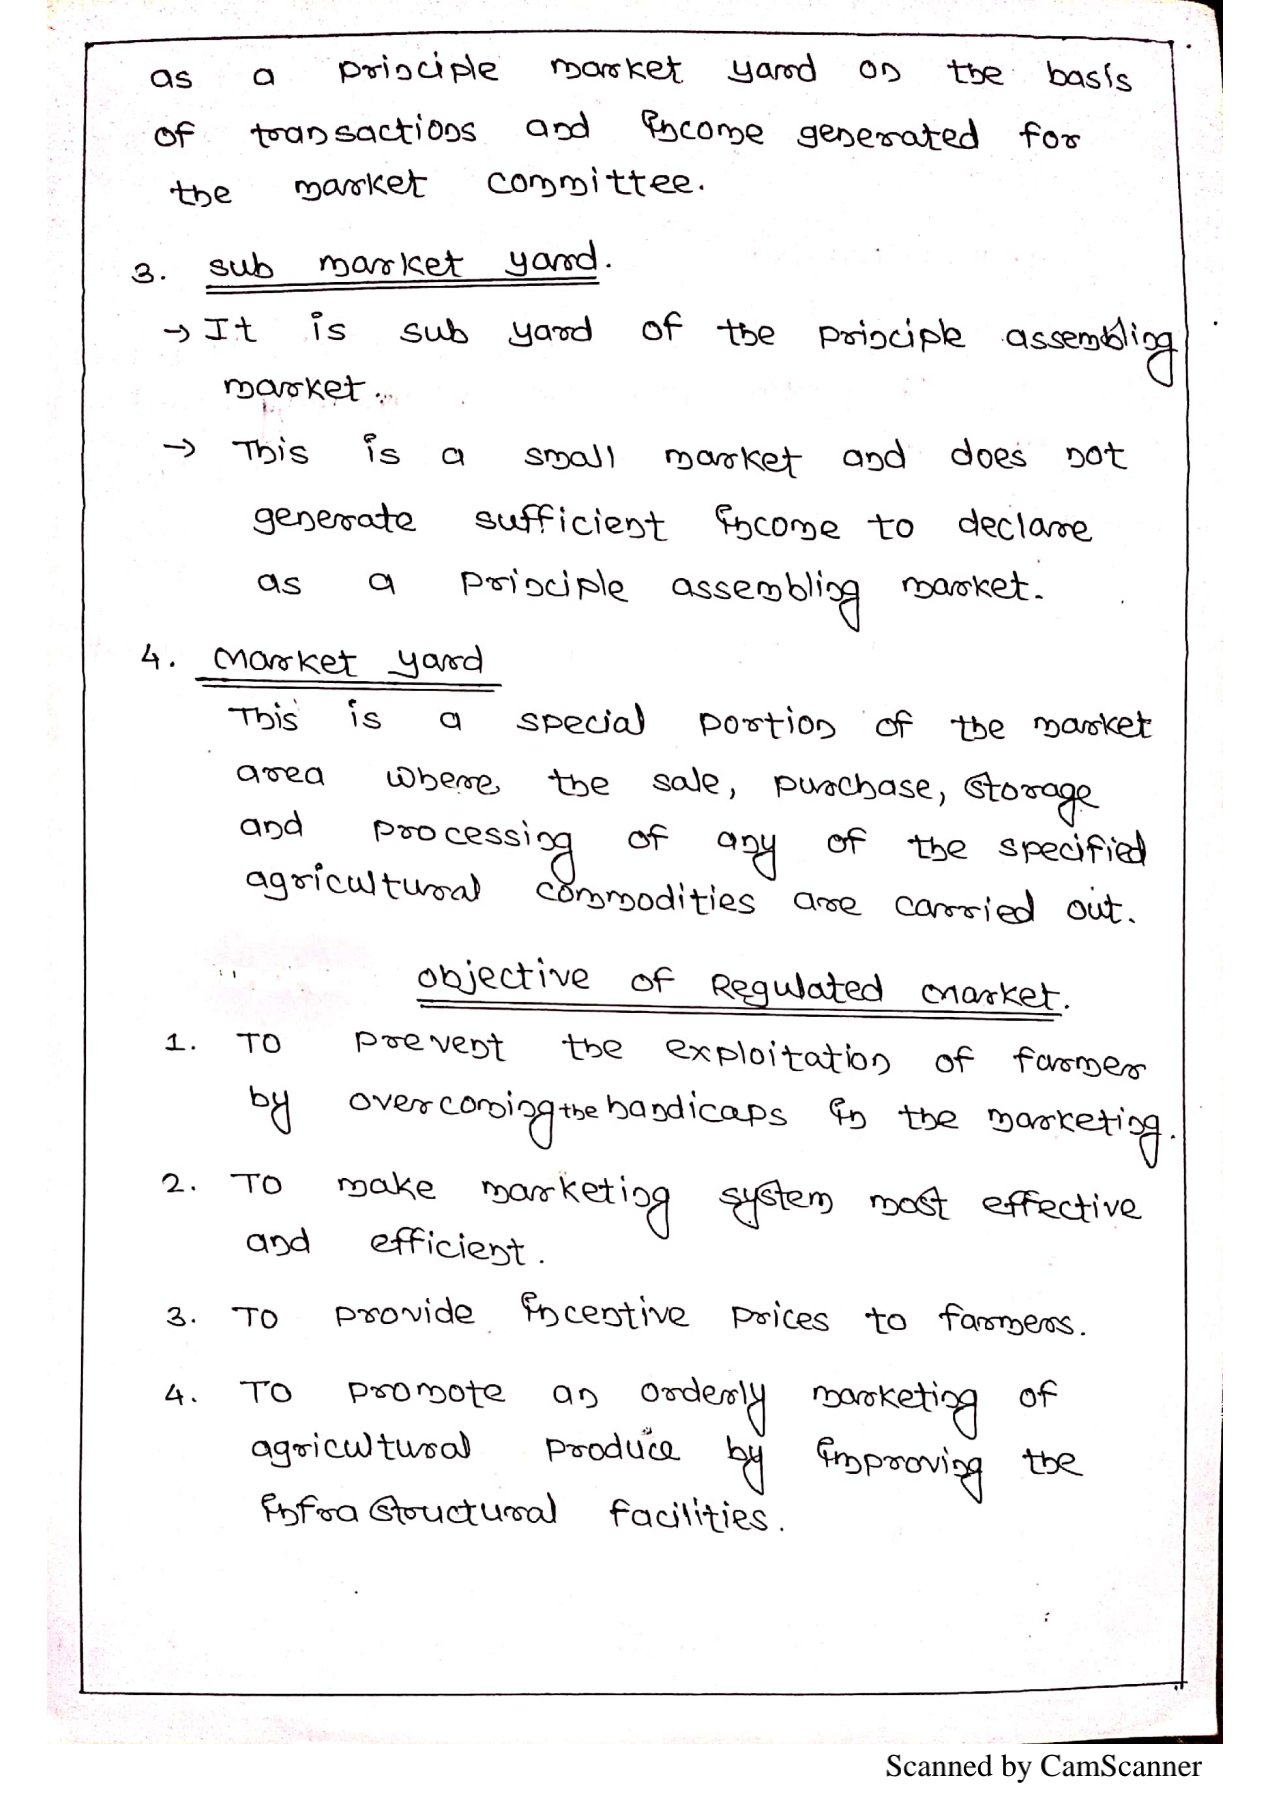 as a principle market yard on the basis
of transactions and income generated for
the market committee.
3. sub market yard.
→ It is sub yard of the principle assembling
market.
→ This is a small market and does not
generate sufficient income to declare
as a principle assembling market.
4. Market yard
This is a special portion of the market
area where the sale, purchase, storage
and processing of any of the specified
agricultural commodities are carried out.
Objective of Regulated Market.
1. To prevent the exploitation of farmer
by overcoming the handicaps in the marketing.
2. To make marketing system most effective
and efficient.
3. To provide incentive prices to farmers.
4. To promote an orderly marketing of
agricultural produce by improving the
infra structural facilities.
Scanned by CamScanner